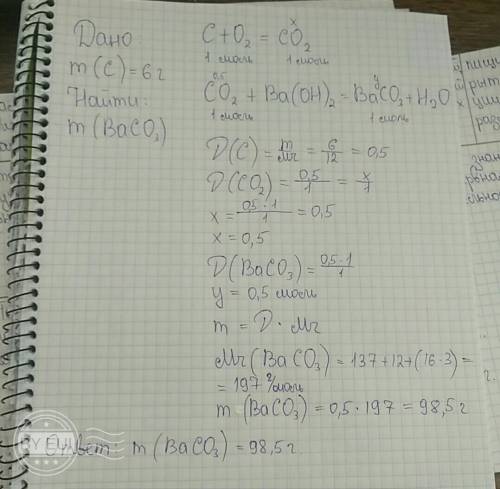 Дано
m(C)=6г
Найти:
m(BaCO₃)
x
C+O₂ = CO₂
1 моль 1 моль
0,5 y
CO₂ + Ba(OH)₂ = BaCO₃ + H₂O
1 моль 1 моль
D(C) = m/Mr = 6/12 = 0,5
D(CO₂) = 0,5/1 = x/1
x = 0,5·1/1 = 0,5
x = 0,5
D(BaCO₃) = 0,5·1/1
y = 0,5 моль
m = D · Mr
Mr(BaCO₃) = 137+12+(16·3) =
= 197 г/моль
m (BaCO₃) = 0,5·197 = 98,5г
Ответ m(BaCO₃) = 98,5г
пищ
рыт
знан
г.